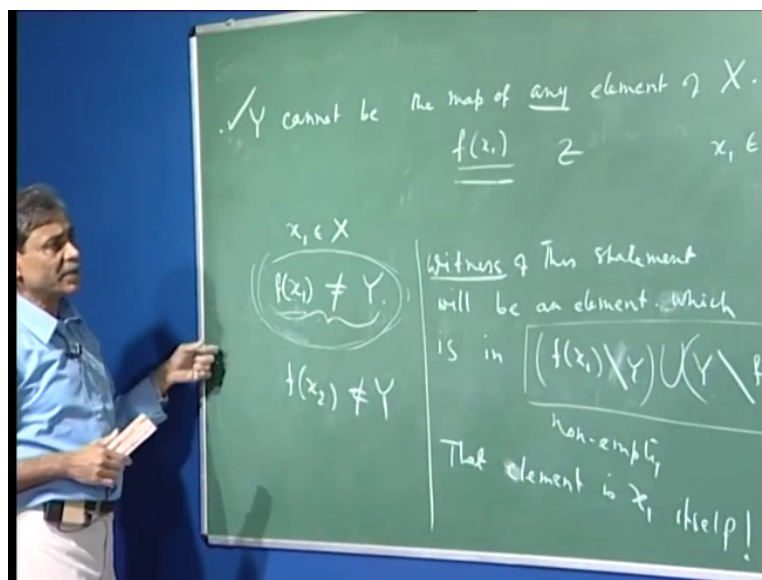 ✓ Y cannot be the map of any element of X.
f(x₁) Z x₁ ∈
x₁ ∈ X
f(x₁) ≠ Y.
f(x₂) ≠ Y
Witness of This statement
will be an element which
is in (f(x₁) \ Y) ∪ (Y \ f
non-empty
That element is x₁ itself!